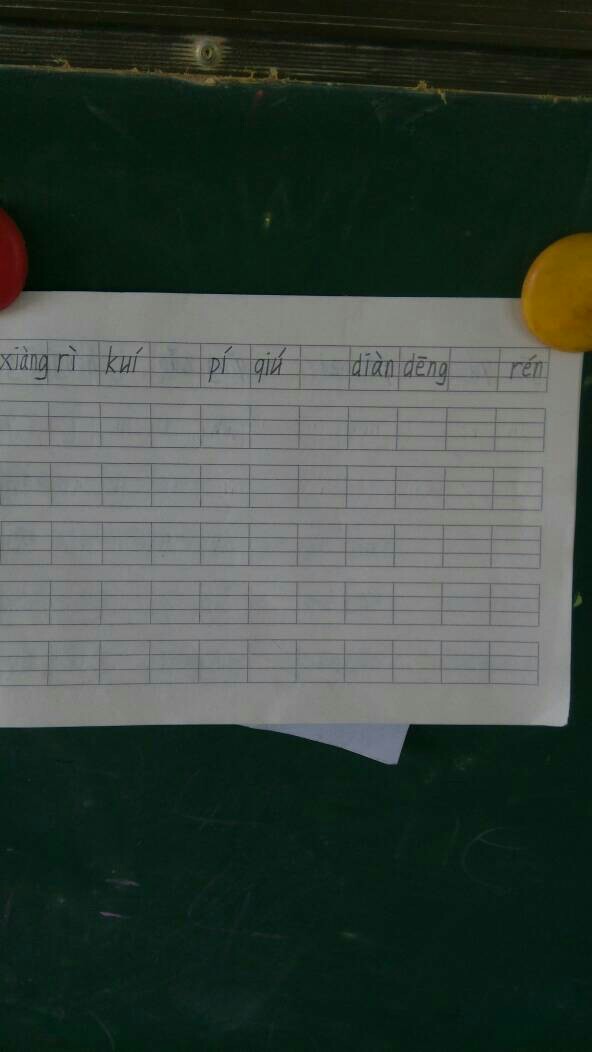 xiàng rì kuí pí qiú diàn dēng rén